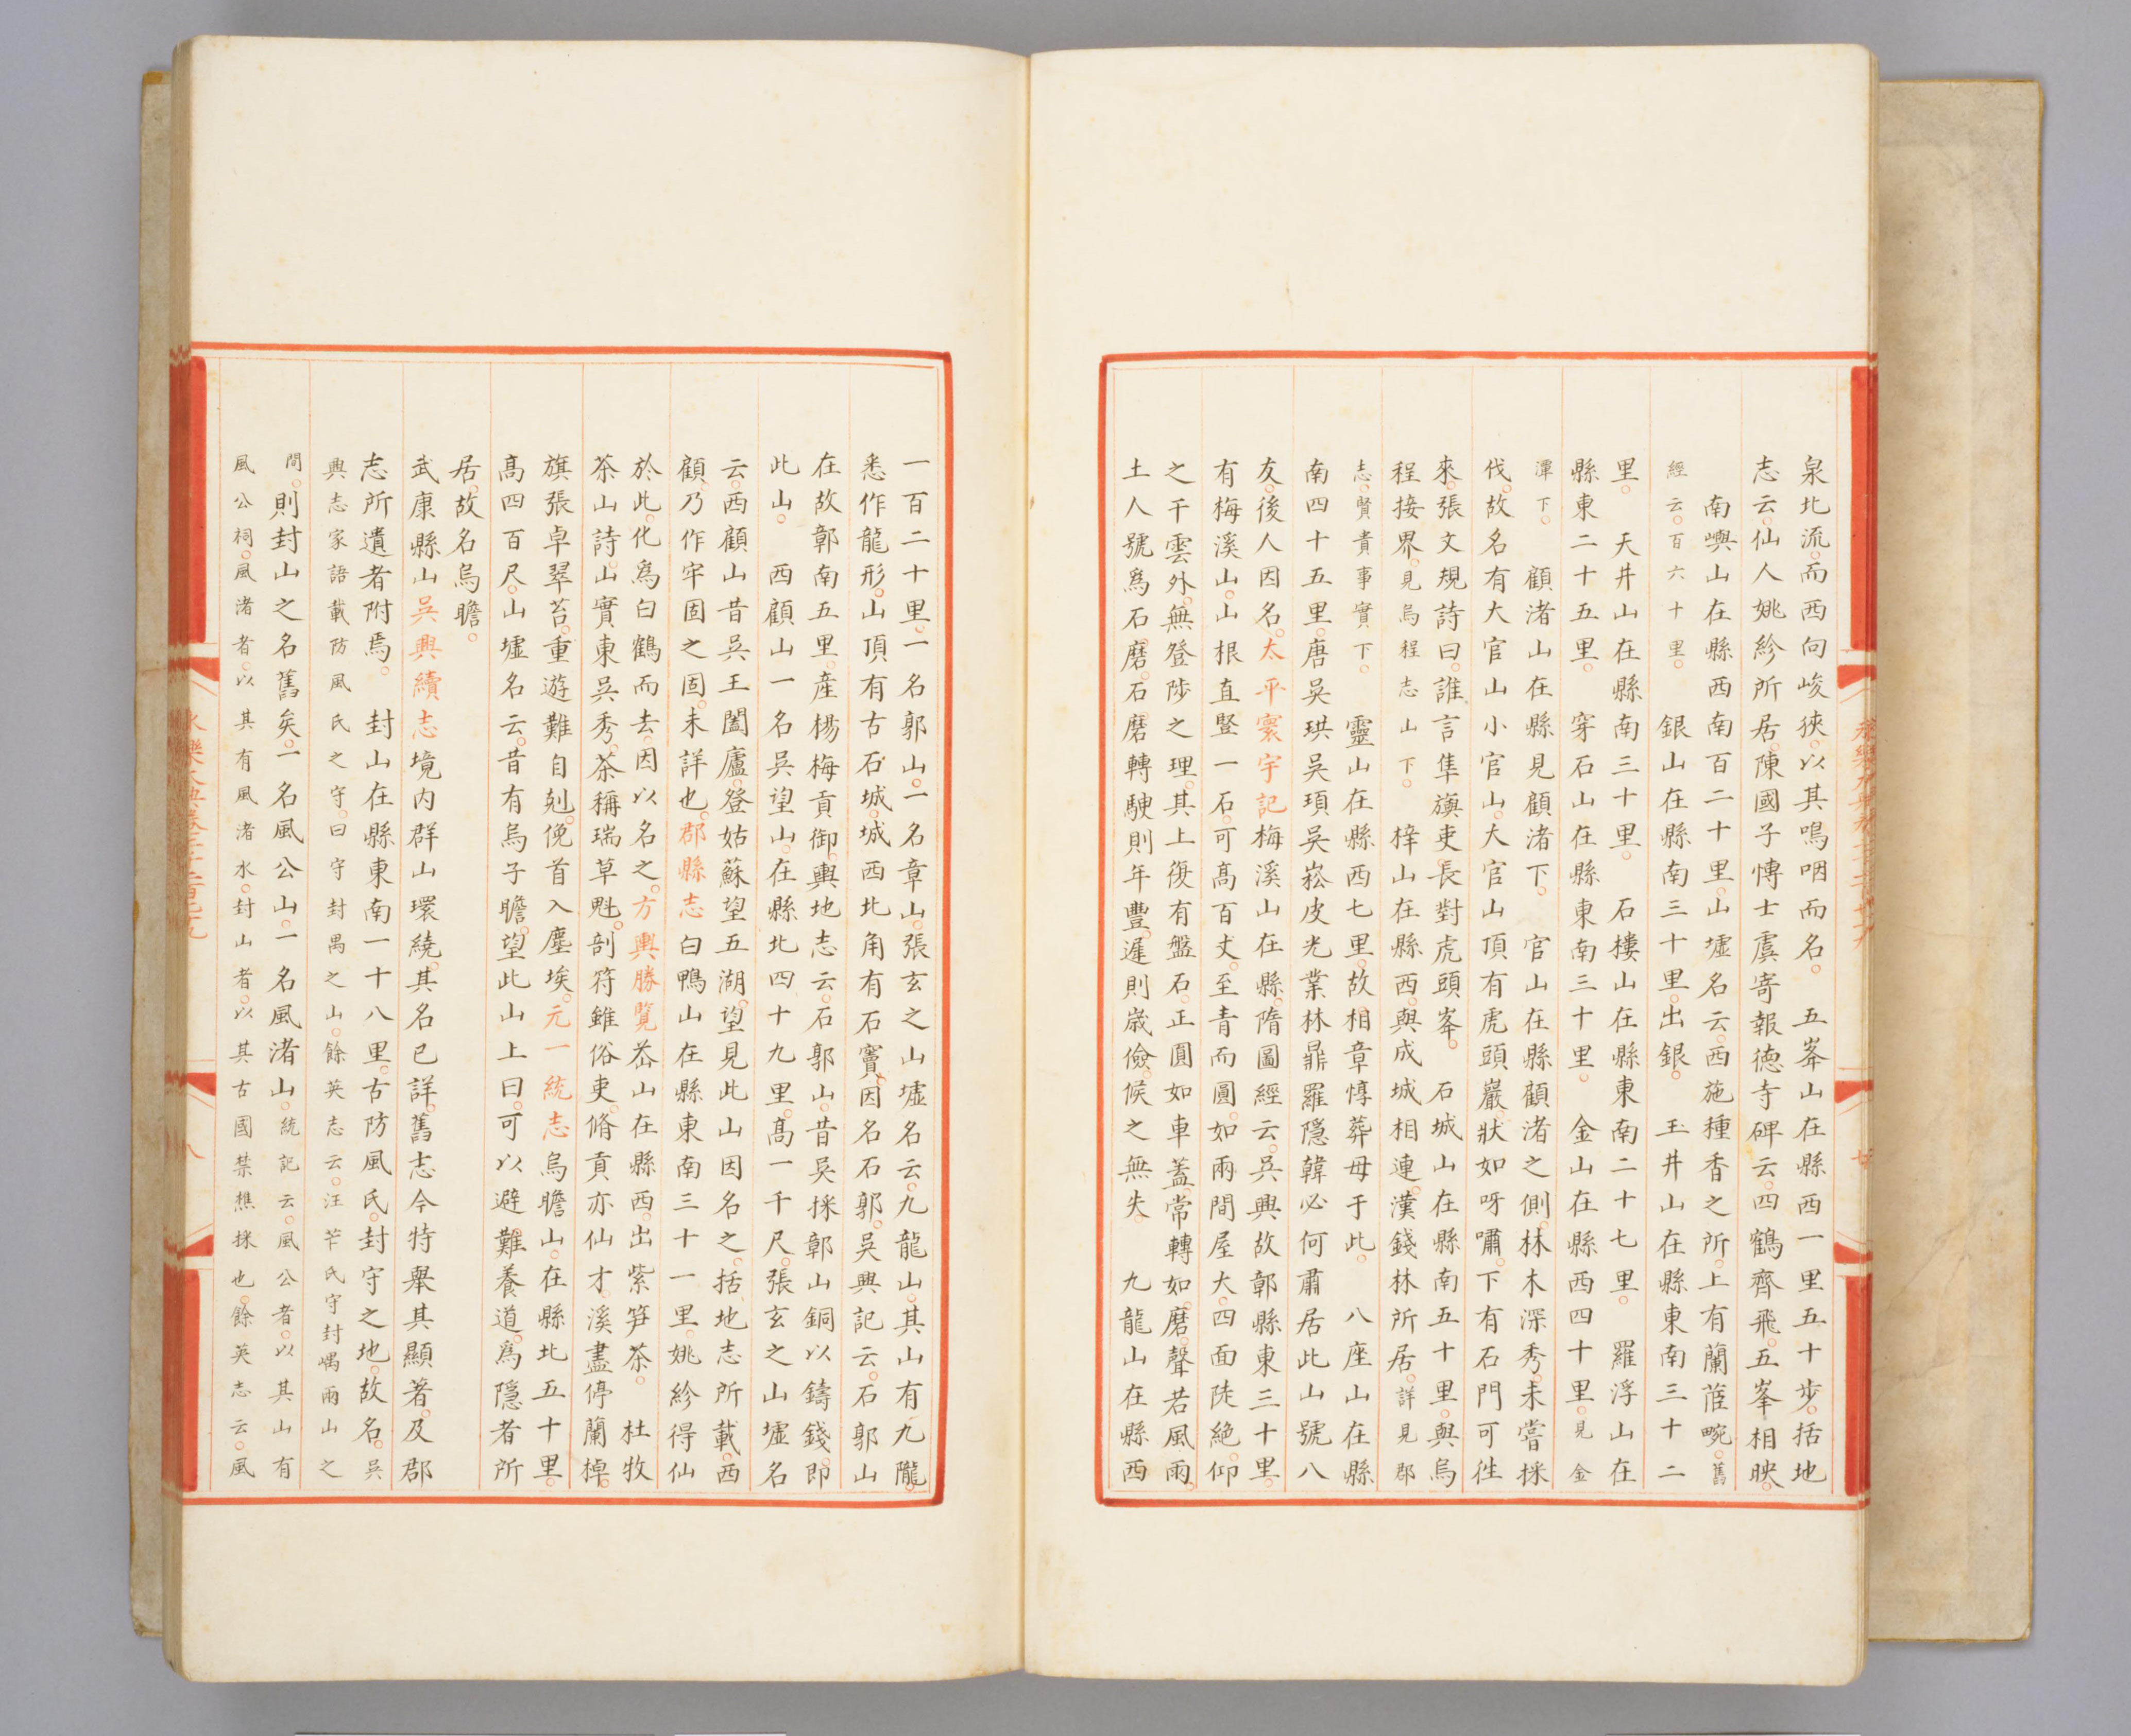 泉北流。而西向峻狹。以其鳴咽而名。　五峯山在縣西一里五十步。括地
志云。仙人姚紾所居。陳國子愽士虞寄報徳寺碑云。四鶴齊飛。五峯相映。
南嶼山在縣西南百二十里。山墟名云。西施種香之所。上有蘭茷畹。舊
經云。百六十里。　銀山在縣南三十里。出銀。　玉井山在縣東南三十二
里。　天井山在縣南三十里。　石樓山在縣東南二十七里。　羅浮山在
縣東二十五里。　穿石山在縣東南三十里。　金山在縣西四十里。見金
潭下。　顧渚山在縣見顧渚下。　官山在縣顧渚之側。林木深秀。未嘗採
伐。故名有大官山小官山。大官山頂有虎頭巖。狀如呀嘯。下有石門可徃
來。張文規詩曰。誰言隼旟吏。長對虎頭峯。　石城山在縣南五十里。與烏
程接界。見烏程志山下。　梓山在縣西。與成城相連。漢錢林所居。詳見郡
志。賢貴事實下。　靈山在縣西七里。故相章惇葬母于此。　八座山在縣
南四十五里。唐吳珙吳頊吳崧皮光業林鼎羅隱韓必何肅居此山號八
友。後人因名。太平寰宇記梅溪山在縣。隋圖經云。吳興故鄣縣東三十里。
有梅溪山。山根直竪一石。可髙百丈。至青而圓。如兩間屋大。四面陡絶。仰
之干雲外。無登陟之理。其上復有盤石。正圓如車蓋。常轉如磨。聲若風雨。
土人號爲石磨。石磨轉駛則年豐。遲則歲儉。候之無失。　九龍山在縣西
一百二十里。一名郭山。一名章山。張玄之山墟名云。九龍山。其山有九隴。
悉作龍形。山頂有古石城。城西北角有石竇。因名石郭。吳興記云。石郭山
在故鄣南五里。産楊梅貢御。輿地志云。石郭山。昔吳採鄣山銅以鑄錢。即
此山。　西顧山一名吳望山。在縣北四十九里。髙一千尺。張玄之山墟名
云。西顧山昔吳王闔廬。登姑蘇望五湖。望見此山因名之。括地志所載。西
顧。乃作牢固之固。未詳也。郡縣志白鴨山在縣東南三十一里。姚紾得仙
於此。化爲白鶴而去。因以名之。方輿勝覽岕山在縣西。出紫笋茶。　杜牧
茶山詩。山實東吳秀。茶稱瑞草魁。剖符雖俗吏。脩貢亦仙才。溪盡停蘭棹。
旗張卓翠苔。重遊難自剋。俛首入塵埃。元一統志烏瞻山。在縣北五十里。
髙四百尺。山墟名云。昔有烏子瞻。望此山上曰。可以避難。養道。爲隱者所
居。故名烏瞻。
武康縣山吳興續志境内群山環繞。其名已詳。舊志今特舉其顯著。及郡
志所遺者附焉。　封山在縣東南一十八里。古防風氏。封守之地。故名。吳
興志家語載防風氏之守。曰守封禺之山。餘英志云。汪芒氏守封嵎兩山之
間。則封山之名舊矣。一名風公山。一名風渚山。統記云。風公者。以其山有
風公祠。風渚者。以其有風渚水。封山者。以其古國禁樵採也。餘英志云。風